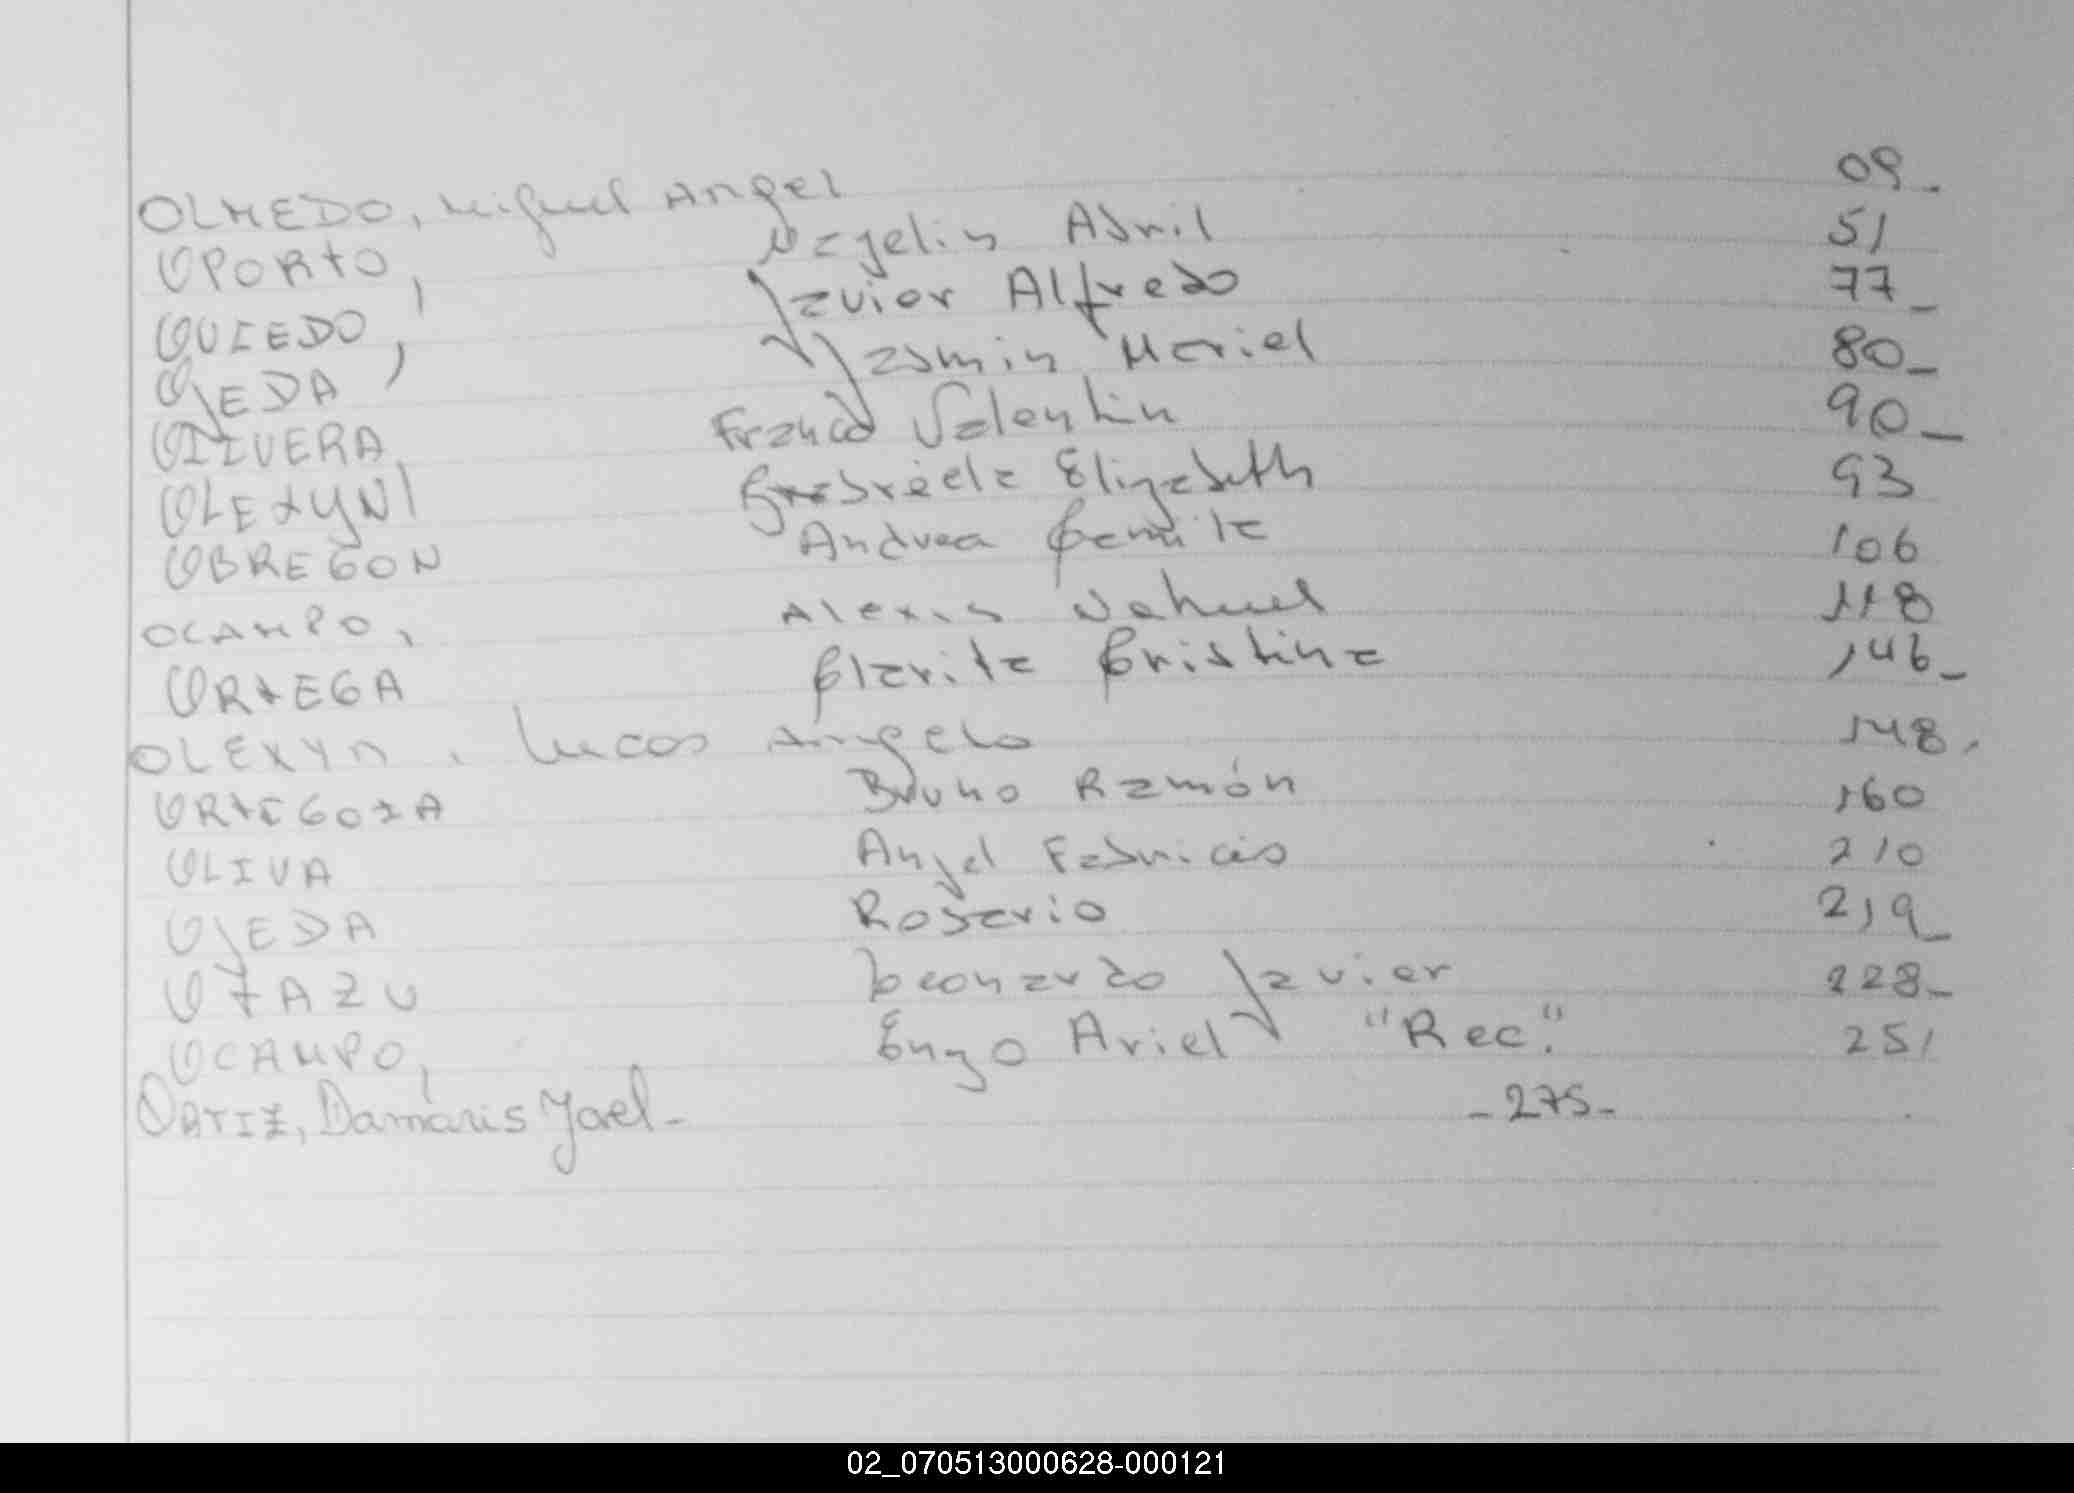 OLMEDO, Miguel Angel 09_
OPORTO, Nayelin Abril 51
OVIEDO, Javier Alfredo 77_
OJEDA, Jazmin Mariel 80_
OLIVERA Franco Valentin 90_
OLEXYN Gabriela Elizabeth 93
OBREGON Andrea Camila 106
OCAMPO, Alexis Nahuel 118
ORTEGA Clarita Cristina 146_
OLEXYN, Lucas Angelo 148,
ORTEGOZA Bruno Ramón 160
OLIVA Angel Fabricio 210
OJEDA Rosario 219_
Leonardo Javier 228_
OCAMPO, Enzo Ariel "Rec." 251
ORTIZ, Damaris Yael- -275-
02_070513000628-000121